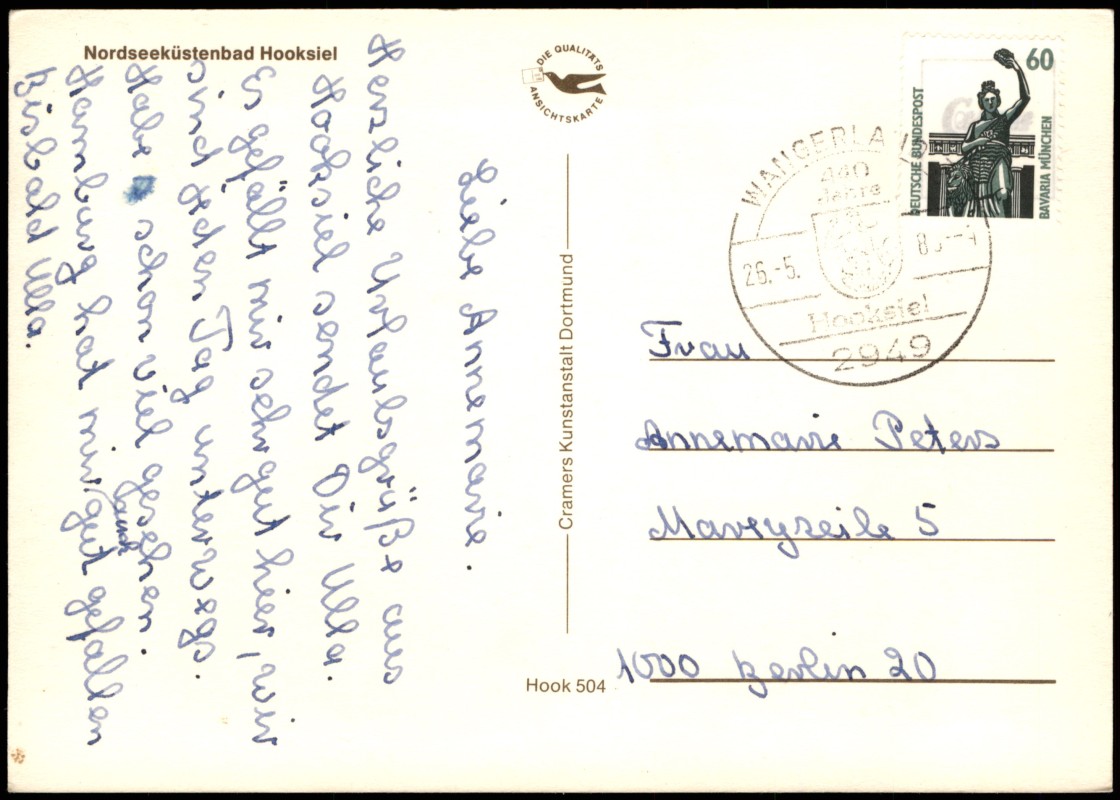 Nordseeküstenbad Hooksiel
DIE QUALITÄTS
ANSICHTSKARTE
Liebe Annemarie.
Herzliche Urlaubsgrüße aus
Hooksiel sendet Dir Ulla.
Es gefällt mir sehr gut hier, wir
sind jeden Tag unterwegs.
Habe schon viel gesehen.
Hamburg hat mir auch gut gefallen
Bis bald Ulla.
Cramers Kunstanstalt Dortmund
Hook 504
60
DEUTSCHE BUNDESPOST
BAVARIA MÜNCHEN
WANGERLA
Jahre
26.-5.
Hooksiel
2949
Frau
Annemarie Peters
1000 Berlin 20